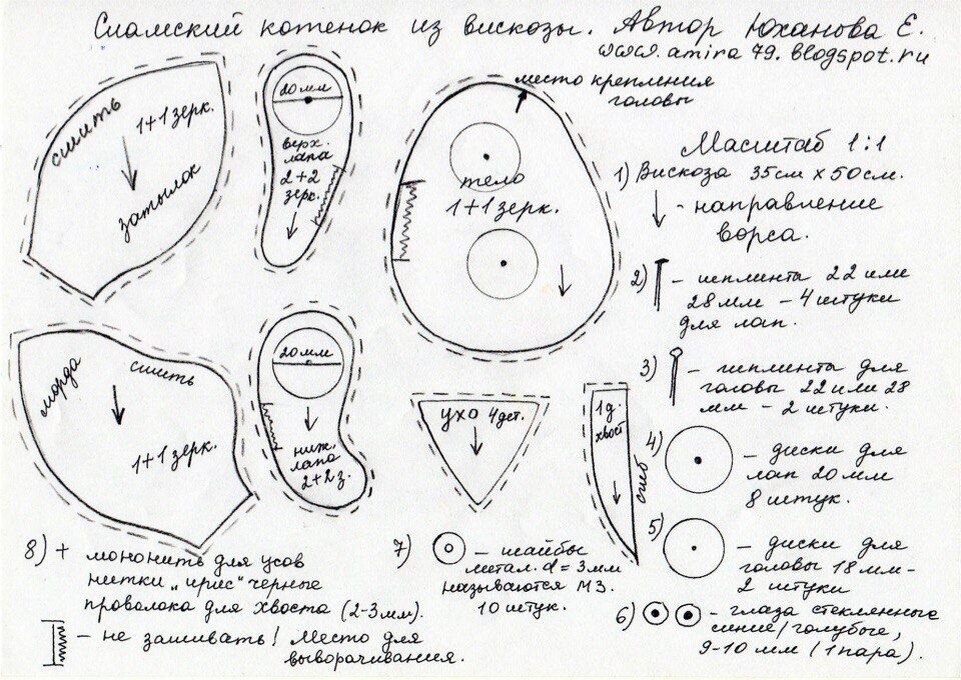 Сиамский котенок из вискозы. Автор Юханова Е.
www.amira79.blogspot.ru
сшить
1+1зерк.
затылок
20мм
верх.
лапа
2+2
зерк.
место крепления
головы
тело
1+1зерк.
Масштаб 1:1
1) Вискоза 35см х 50см.
- направление
ворса.
2) - шплинта 22 или
28мм – 4 штуки
для лап.
морда
сшить
1+1зерк.
20мм
ниж.
лапа
2+2з.
ухо 4дет.
1д.
хвост
сгиб
3) - шплинта для
головы 22 или 28
мм – 2 штуки.
4) - диски для
лап 20мм
8 штук.
5) - диски для
головы 18мм-
2 штуки
6) - глаза стеклянные
синие/голубые,
9-10 мм (1 пара).
7) - шайбы
метал. d=3мм
называются М3.
10 штук.
8) + мононить для усов
нитки „ирис“ черные
проволока для хвоста (2-3мм).
- не зашивать! Место для
выворачивания.